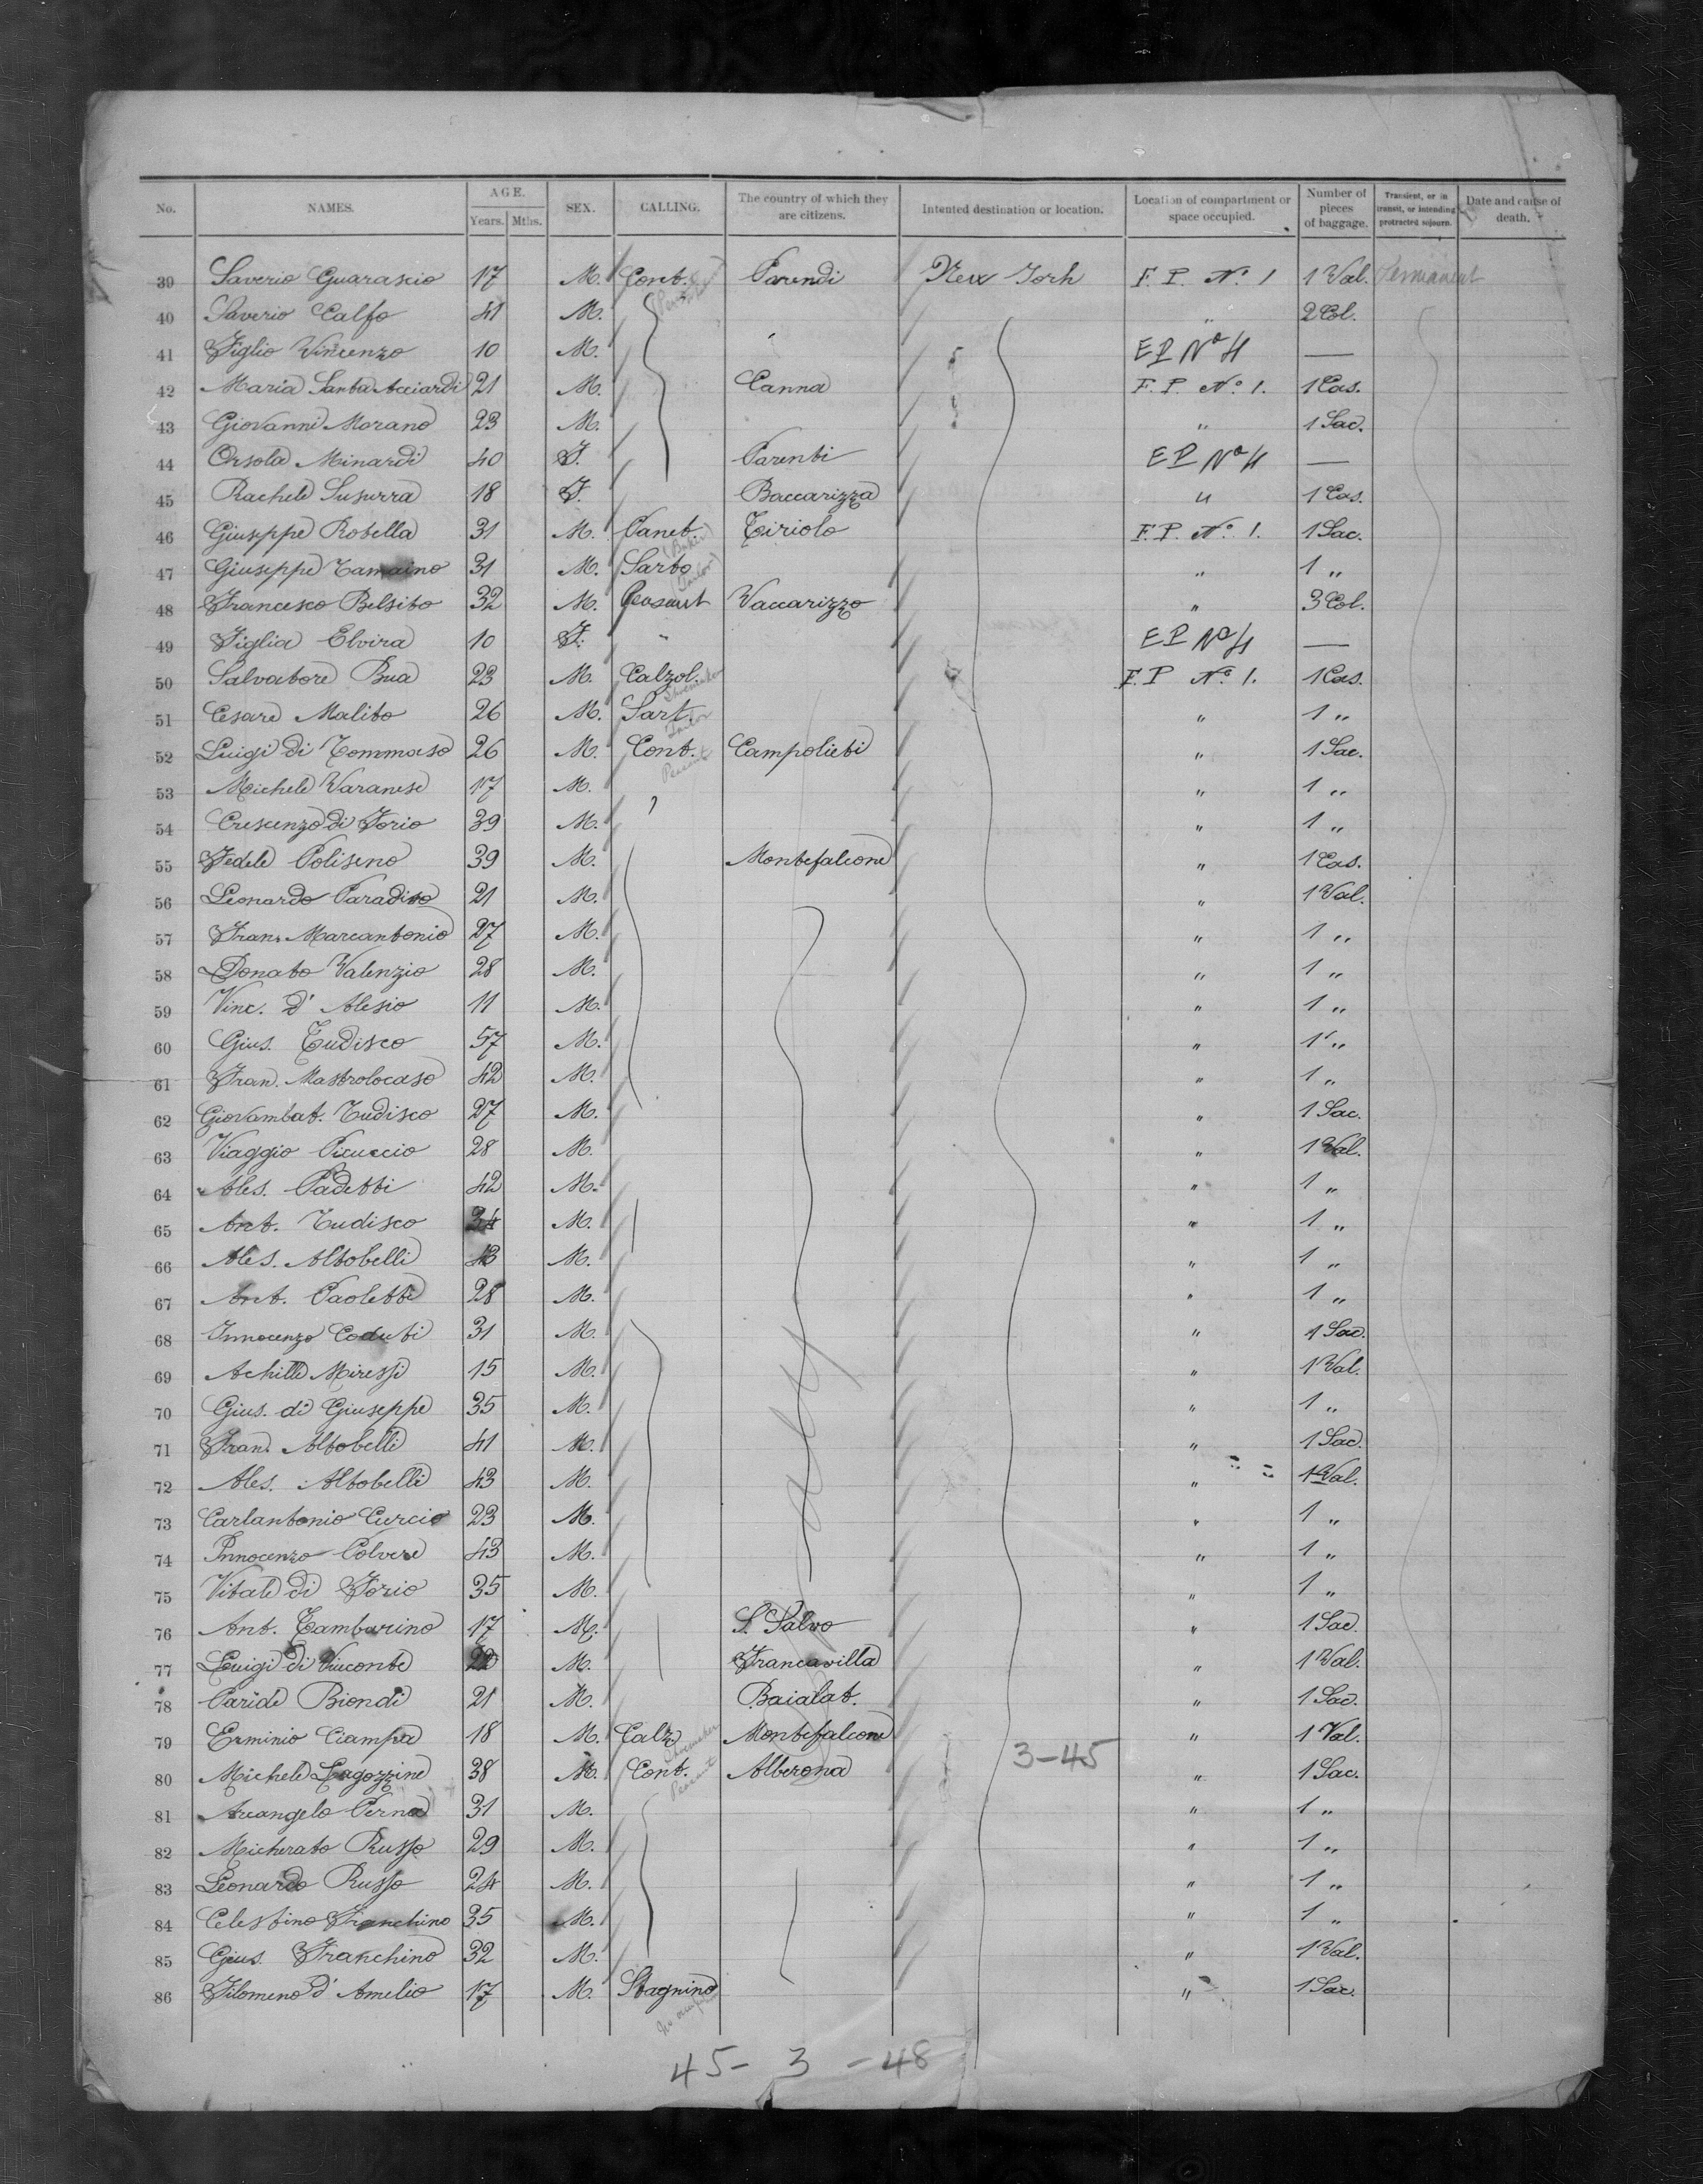 No. NAMES. AGE. Years. Mths. SEX. CALLING. The country of which they are citizens. Intented destination or location. Location of compartment or space occupied. Number of pieces of baggage. Transient, or in transit, or intending protracted sojourn. Date and cause of death.
39 Saverio Guarascio 17 M. Cont. Parendi New York F. P. No. 1 1 Val. Permanent
40 Saverio Calfo 41 M. " 2 Col.
41 Figlio Vincenzo 10 M. " E P No 4 —
42 Maria Santa Acciardi 21 M. Canna F. P. No. 1. 1 Cas.
43 Giovanni Morano 23 M. " 1 Sac.
44 Orsola Minardi 40 F. Parenti E P No 4 —
45 Rachele Susurra 18 F. Baccarizza " 1 Cas.
46 Giuseppe Robella 31 M. Panet. (Baker) Tiriolo F. P. No. 1. 1 Sac.
47 Giuseppe Tamaino 31 M. Sarto (Tailor) " 1 "
48 Francesco Belsito 32 M. Peasant Vaccarizzo " 3 Col.
49 Figlia Elvira 10 F. " E P No 4 —
50 Salvatore Bua 23 M. Calzol. Shoemaker F. P No. 1. 1 Cas.
51 Cesare Malito 26 M. Sart. Tailor " 1 "
52 Luigi di Tommaso 26 M. Cont. Peasant Campolieti " 1 Sac.
53 Michele Varanese 17 M. " 1 "
54 Crescenzo di Iorio 39 M. " 1 "
55 Fedele Poliseno 39 M. Montefalcone " 1 Cas.
56 Leonardo Paradiso 21 M. " 1 Val.
57 Fran. Marcantonio 27 M. " 1 "
58 Donato Valenzio 28 M. " 1 "
59 Vinc. d' Alesio 11 M. " 1 "
60 Gius. Tudisco 57 M. " 1 "
61 Fran. Mastrolocaso 42 M. " 1 "
62 Giovambat. Tudisco 27 M. " 1 Sac.
63 Viaggio Picuccio 28 M. " 1 Val.
64 Ales. Padetti 42 M. " 1 "
65 Ant. Tudisco 34 M. " 1 "
66 Ales. Altobelli 43 M. " 1 "
67 Ant. Paoletti 28 M. " 1 "
68 Innocenzo Coduti 31 M. " 1 Sac.
69 Achille Miressi 15 M. " 1 Val.
70 Gius. di Giuseppe 35 M. " 1 "
71 Fran. Altobelli 41 M. " 1 Sac.
72 Ales. Altobelli 43 M. " 1 Val.
73 Carlantonio Curcio 23 M. " 1 "
74 Innocenzo Colvere 43 M. " 1 "
75 Vitale di Iorio 35 M. " 1 "
76 Ant. Tamburino 17 M. S. Salvo " 1 Sac.
77 Luigi di Visconte M. Francavilla " 1 Val.
78 Paride Biondi 21 M. Baialat. " 1 Sac.
79 Erminio Ciampa 18 M. Calz. Shoemaker Montefalcone " 1 Val.
80 Michele Lagozzine 38 M. Cont. Peasant Alberona 3-45 " 1 Sac.
81 Arcangelo Perna 31 M. " 1 "
82 Micherato Russo 29 M. " 1 "
83 Leonardo Russo 24 M. " 1 "
84 Celestino Franchino 35 M. " 1 "
85 Gius. Franchino 32 M. " 1 Val.
86 Filomeno d' Amelio 17 M. Stagnino " 1 Sac.
Italy
45 - 3 - 48